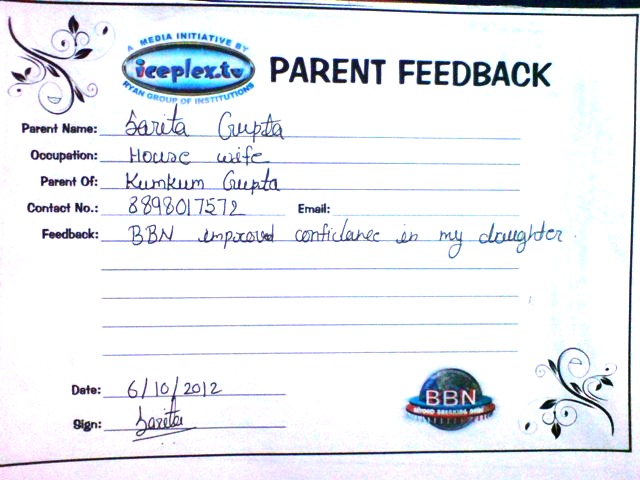 A MEDIA INITIATIVE BY
iceplex.tv
RYAN GROUP OF INSTITUTIONS
PARENT FEEDBACK
Parent Name: Sarita Gupta
Occupation: House wife
Parent Of: Kumkum Gupta
Contact No.: 8898017572 Email:
Feedback: BBN improved confidance in my daughter.
Date: 6/10/2012
BBN
BEYOND BREAKING NEWS
Sign: Sarita